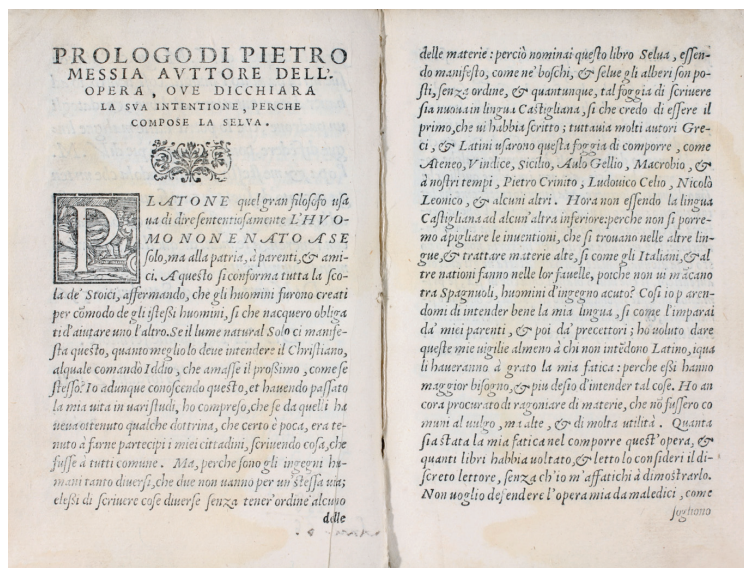 PROLOGO DI PIETRO
MESSIA AVTTORE DELL'.
OPERA, OVE DICCHIARA
LA SVA INTENTIONE, PERCHE
COMPOSE LA SELVA.
PLATONE quel gran filosofo usa
ua di dire sententiosamente L'HVO-
MO NON E NATO A SE
solo, ma alla patria, à parenti, & ami-
ci. A questo si conforma tutta la sco-
la de' Stoici, affermando, che gli huomini furono creati
per cōmodo de gli istessi huomini, si che nacquero obliga
ti d'aiutare uno l'altro. Se il lume natural Solo ci manife-
sta questo, quanto meglio lo deve intendere il Christiano,
alquale comando Iddio, che amasse il prossimo, come se
stesso? Io adunque conoscendo questo, et havendo passato
la mia vita in uari studi, ho compreso, che se da quelli ha
veua ottenuto qualche dottrina, che certo è poca, era te-
nuto à farne partecipi i miei cittadini, scriuendo cosa, che
fusse à tutti comune. Ma, perche sono gli ingegni hu-
mani tanto diuersi, che due non uanno per un'stessa uia;
elessi di scriuere cose diuerse senza tener'ordine alcuno
delle
delle materie: perciò nominai questo libro Selua, essen-
do manifesto, come ne' boschi, & selue gli alberi son po-
sti, senza ordine, & quantunque, tal foggia di scriuere
sia nuoua in lingua Castigliana, si che credo di essere il
primo, che ui habbia scritto; tuttauia molti autori Gre-
ci, & Latini usarono questa foggia di comporre, come
Ateneo, Vindice, Sicilio, Aulo Gellio, Macrobio, &
à nostri tempi, Pietro Crinito, Ludouico Celio, Nicolò
Leonico, & alcuni altri. Hora non essendo la lingua
Castigliana ad alcun'altra inferiore: perche non si porre-
mo à pigliare le inuentioni, che si trouano nelle altre lin-
gue, & trattare materie alte, si come gli Italiani, & al
tre nationi fanno nelle lor fauelle, poiche non ui mācano
tra Spagnuoli, huomini d'ingegno acuto? Cosi io p aren-
domi di intender bene la mia lingua, si come l'imparai
da' miei parenti, & poi da' precettori; ho uoluto dare
queste mie uigilie almeno à chi non intēdono Latino, iqua
li haueranno à grato la mia fatica: perche essi hanno
maggior bisogno, & piu desio d'intender tal cose. Ho an
cora procurato di ragoniare di materie, che nō fussero co
muni al uulgo, ma alte, & di molta utilità. Quanta
sia stata la mia fatica nel comporre quest'opera, &
quanti libri habbia voltato, & letto lo consideri il di-
screto lettore, senza ch'io m'affatichi à dimostrarlo.
Non uoglio defendere l'opera mia da maledici, come
sogliono